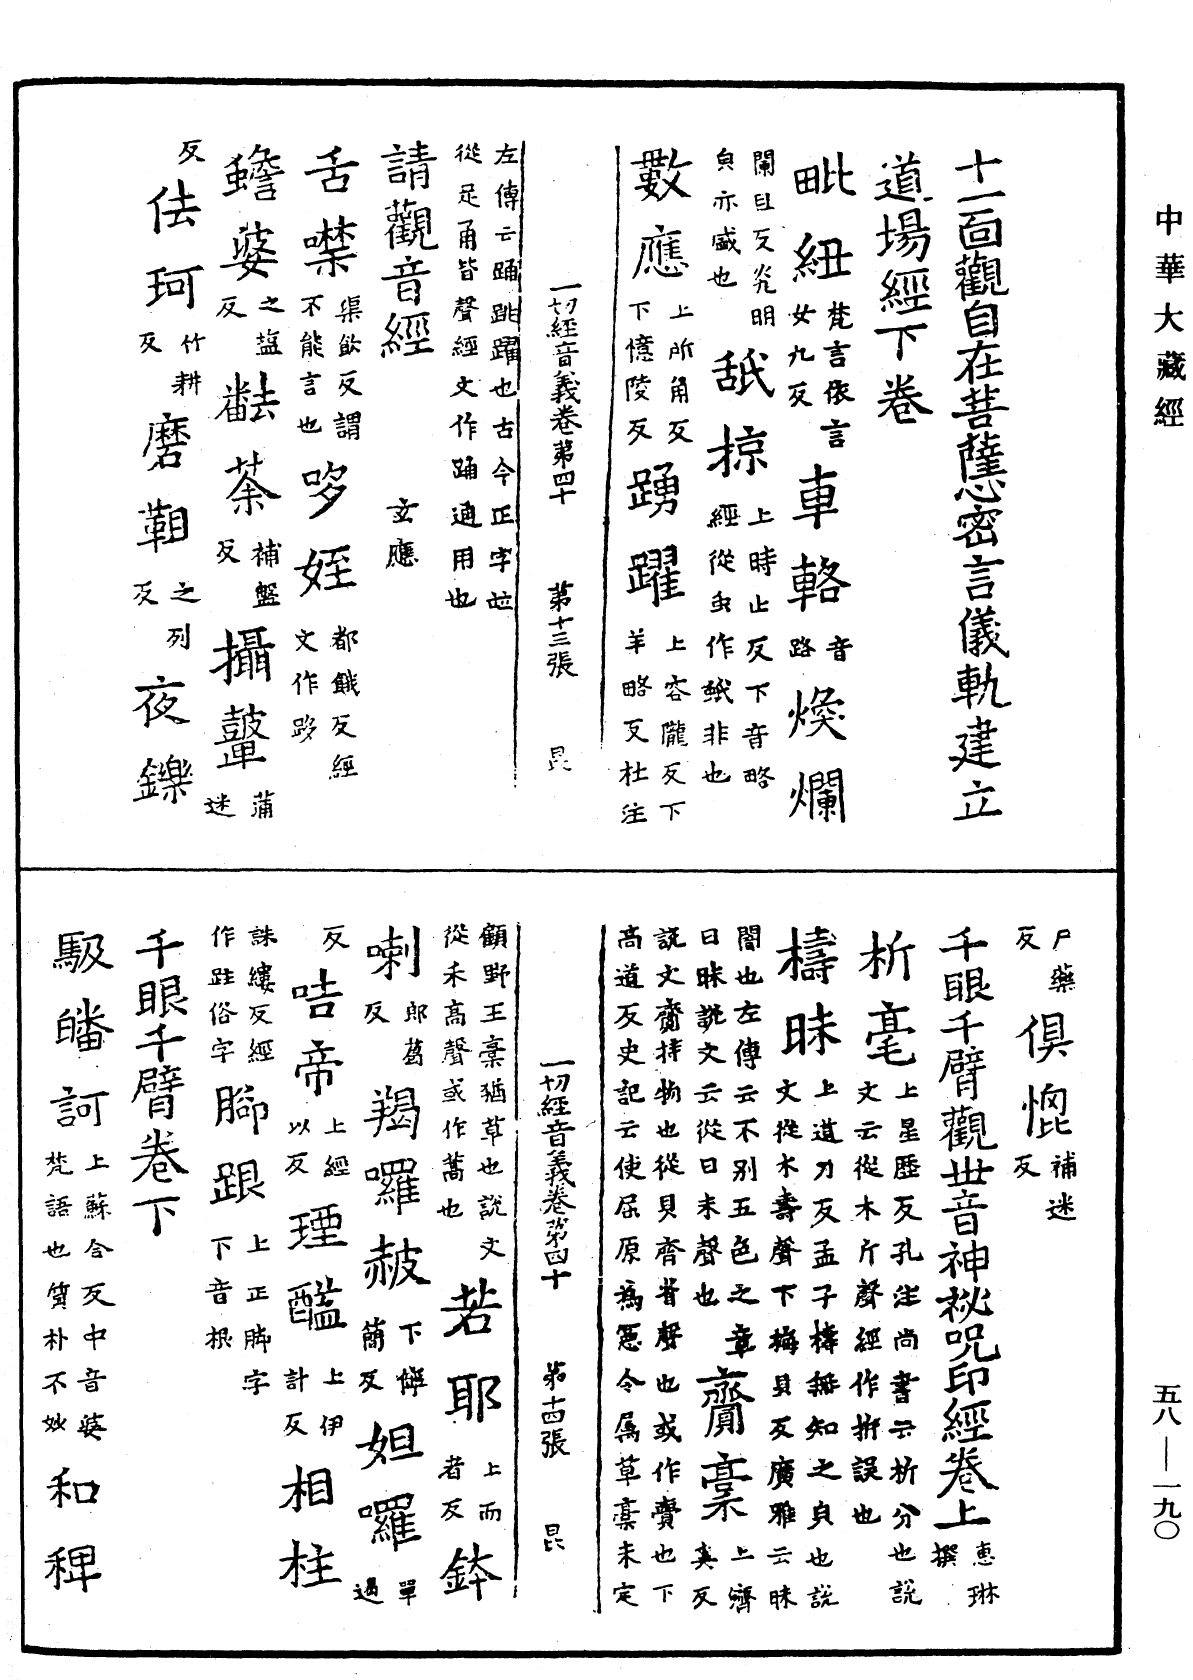 中華大藏經
十一面觀自在菩薩心密言儀軌建立
道場經下卷
毗紐梵言依言女九反 車輅音路 煥爛
闌旦反炎明皃亦盛也 舐掠上時止反下音略經從虫作蚔非也
數應上所角反下憶陵反 踴躍上容隴反下羊略反杜注
一切經音義卷第四十 第十三張 昆
左傳云踊跳躍也古今正字竝從足甬皆聲經文作踊通用也
請觀音經 玄應
舌噤渠飲反謂不能言也 哆姪都餓反經文作跢
蟾婆之塩反 㔛荼補盤反 攝鼙蒲迷
反 佉珂竹耕反 磨䩢之列反 夜鑠
尸藥反 俱愢補迷反
千眼千臂觀世音神祕呪印經卷上 惠琳撰
析毫上星歷反孔注尚書云析分也說文云從木斤聲經作㭊誤也
檮昧上道刀反孟子檮無知之皃也說文從木壽聲下梅貝反廣雅云昧
闇也左傳云不別五色之章日昧說文云從日未聲也 齎稾上濟奚反
說文齎持物也從貝齊省聲也或作賫也下高道反史記云使屈原爲憲令屬草稾未定
一切經音義卷第四十 第十四張 昆
顧野王稾猶草也說文從禾高聲或作藁也 若耶上而者反 鉢
喇郎葛反 羯囉赧下儜簡反 妲囉單遏
反 咭帝上經以反 瑿醯上伊計反 相柱
誅縷反經作跓俗字 腳跟上正脚字下音根
千眼千臂卷下
馺皤訶上蘇合反中音婆梵語也質朴不妙 和稗
五八—一九〇